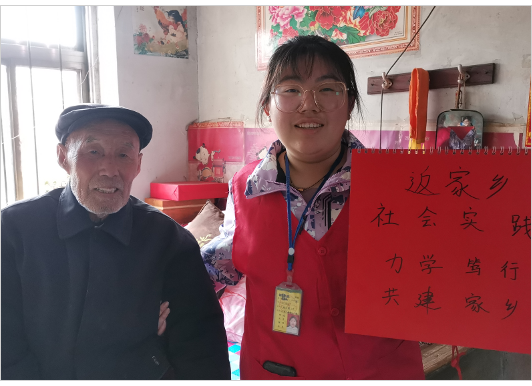 返家乡
社会实践
力学笃行
共建家乡